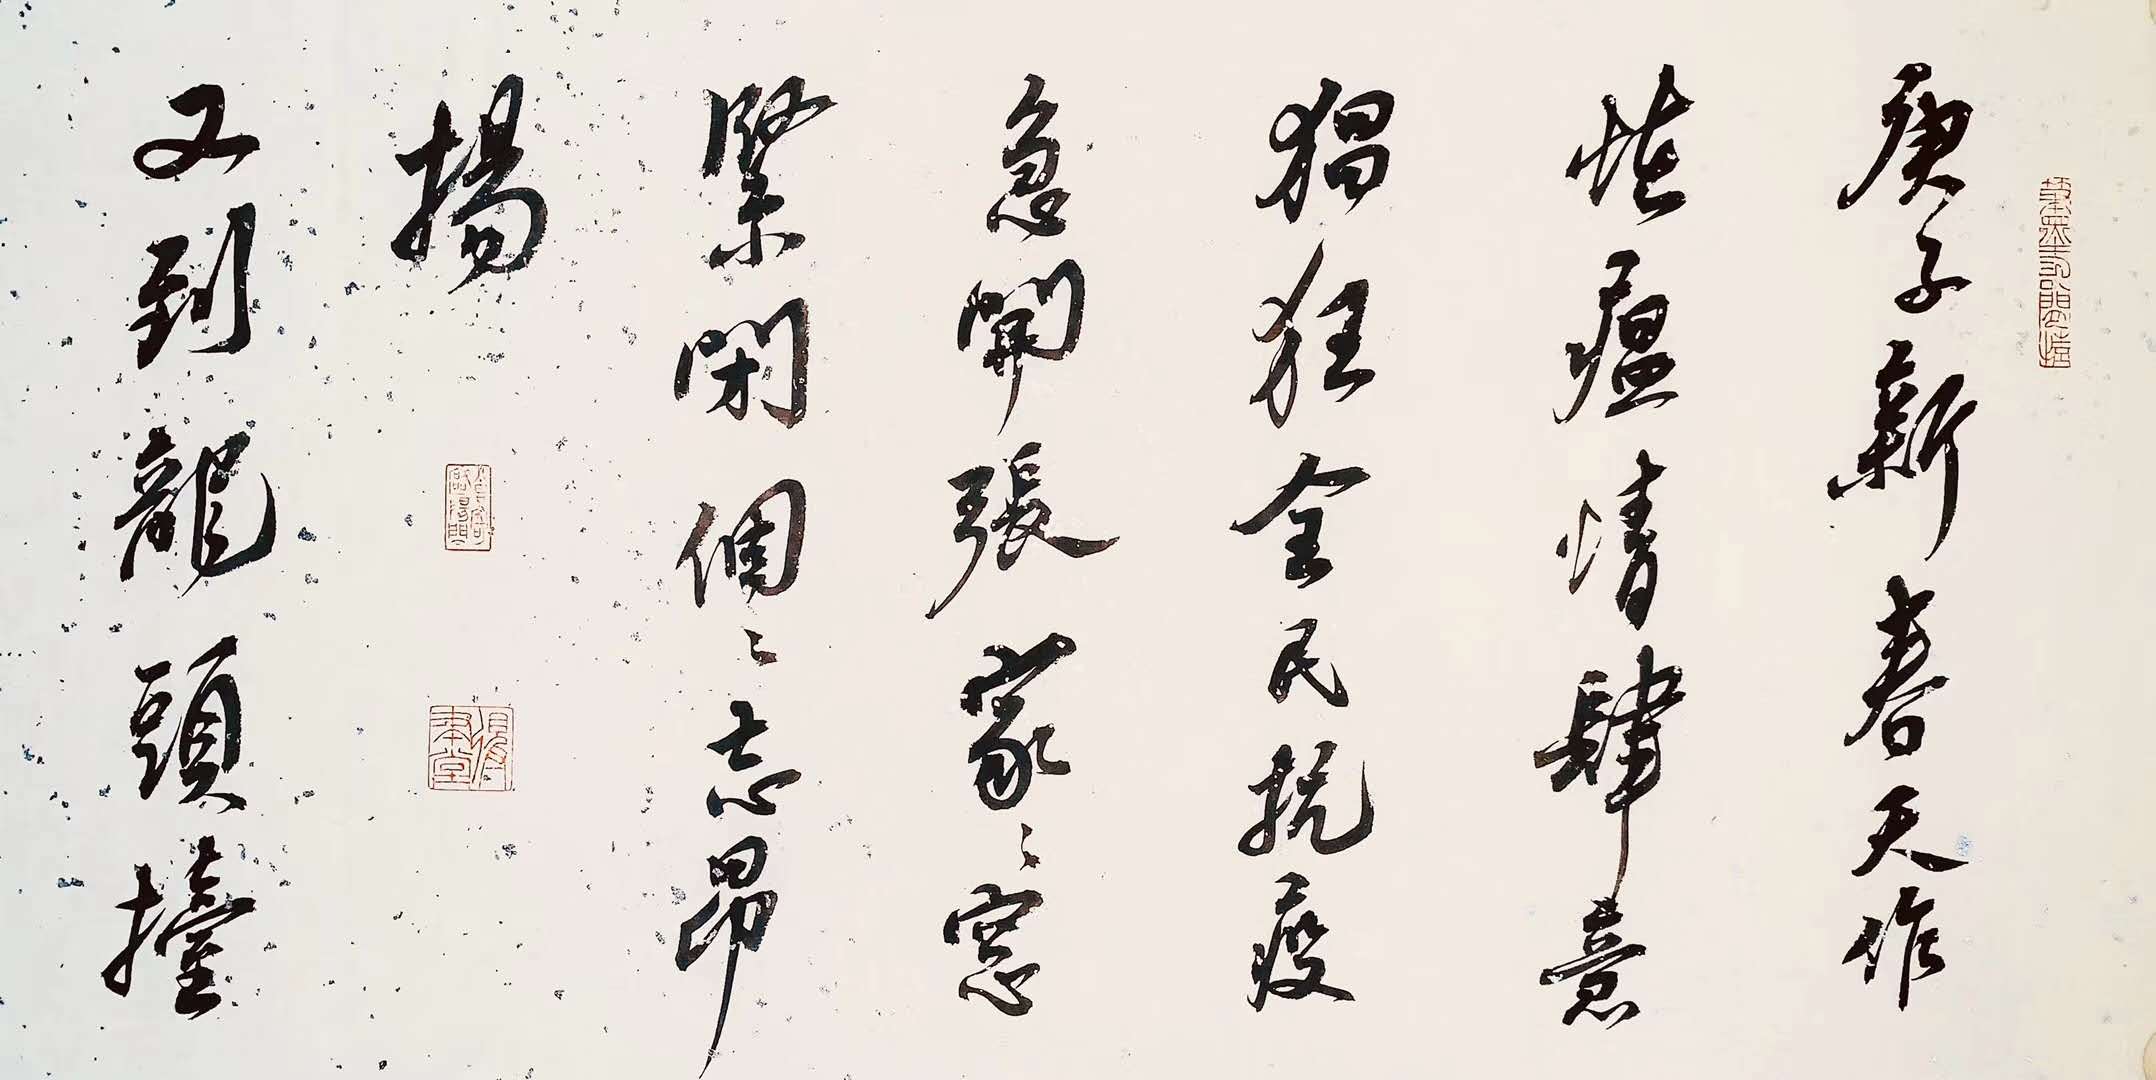 庚子新春天作
恠瘟情肆意
猖狂全民抗疫
急開張家〻窓
緊閉個〻志昂
揚
又到龍頭擡